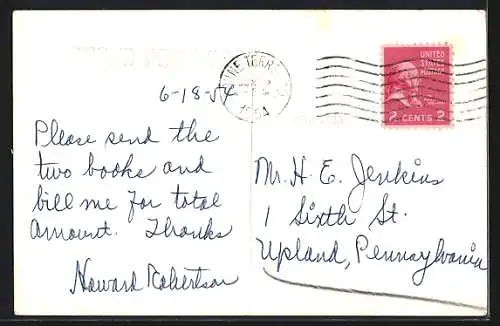 6-18-54
Please send the
two books and
bill me for total
amount. Thanks
Howard Robertson
UNITED
STATES
POSTAGE
2 CENTS 2
1954
Mr. H. E. Jenkins
1 Sixth St.
Upland, Pennsylvania